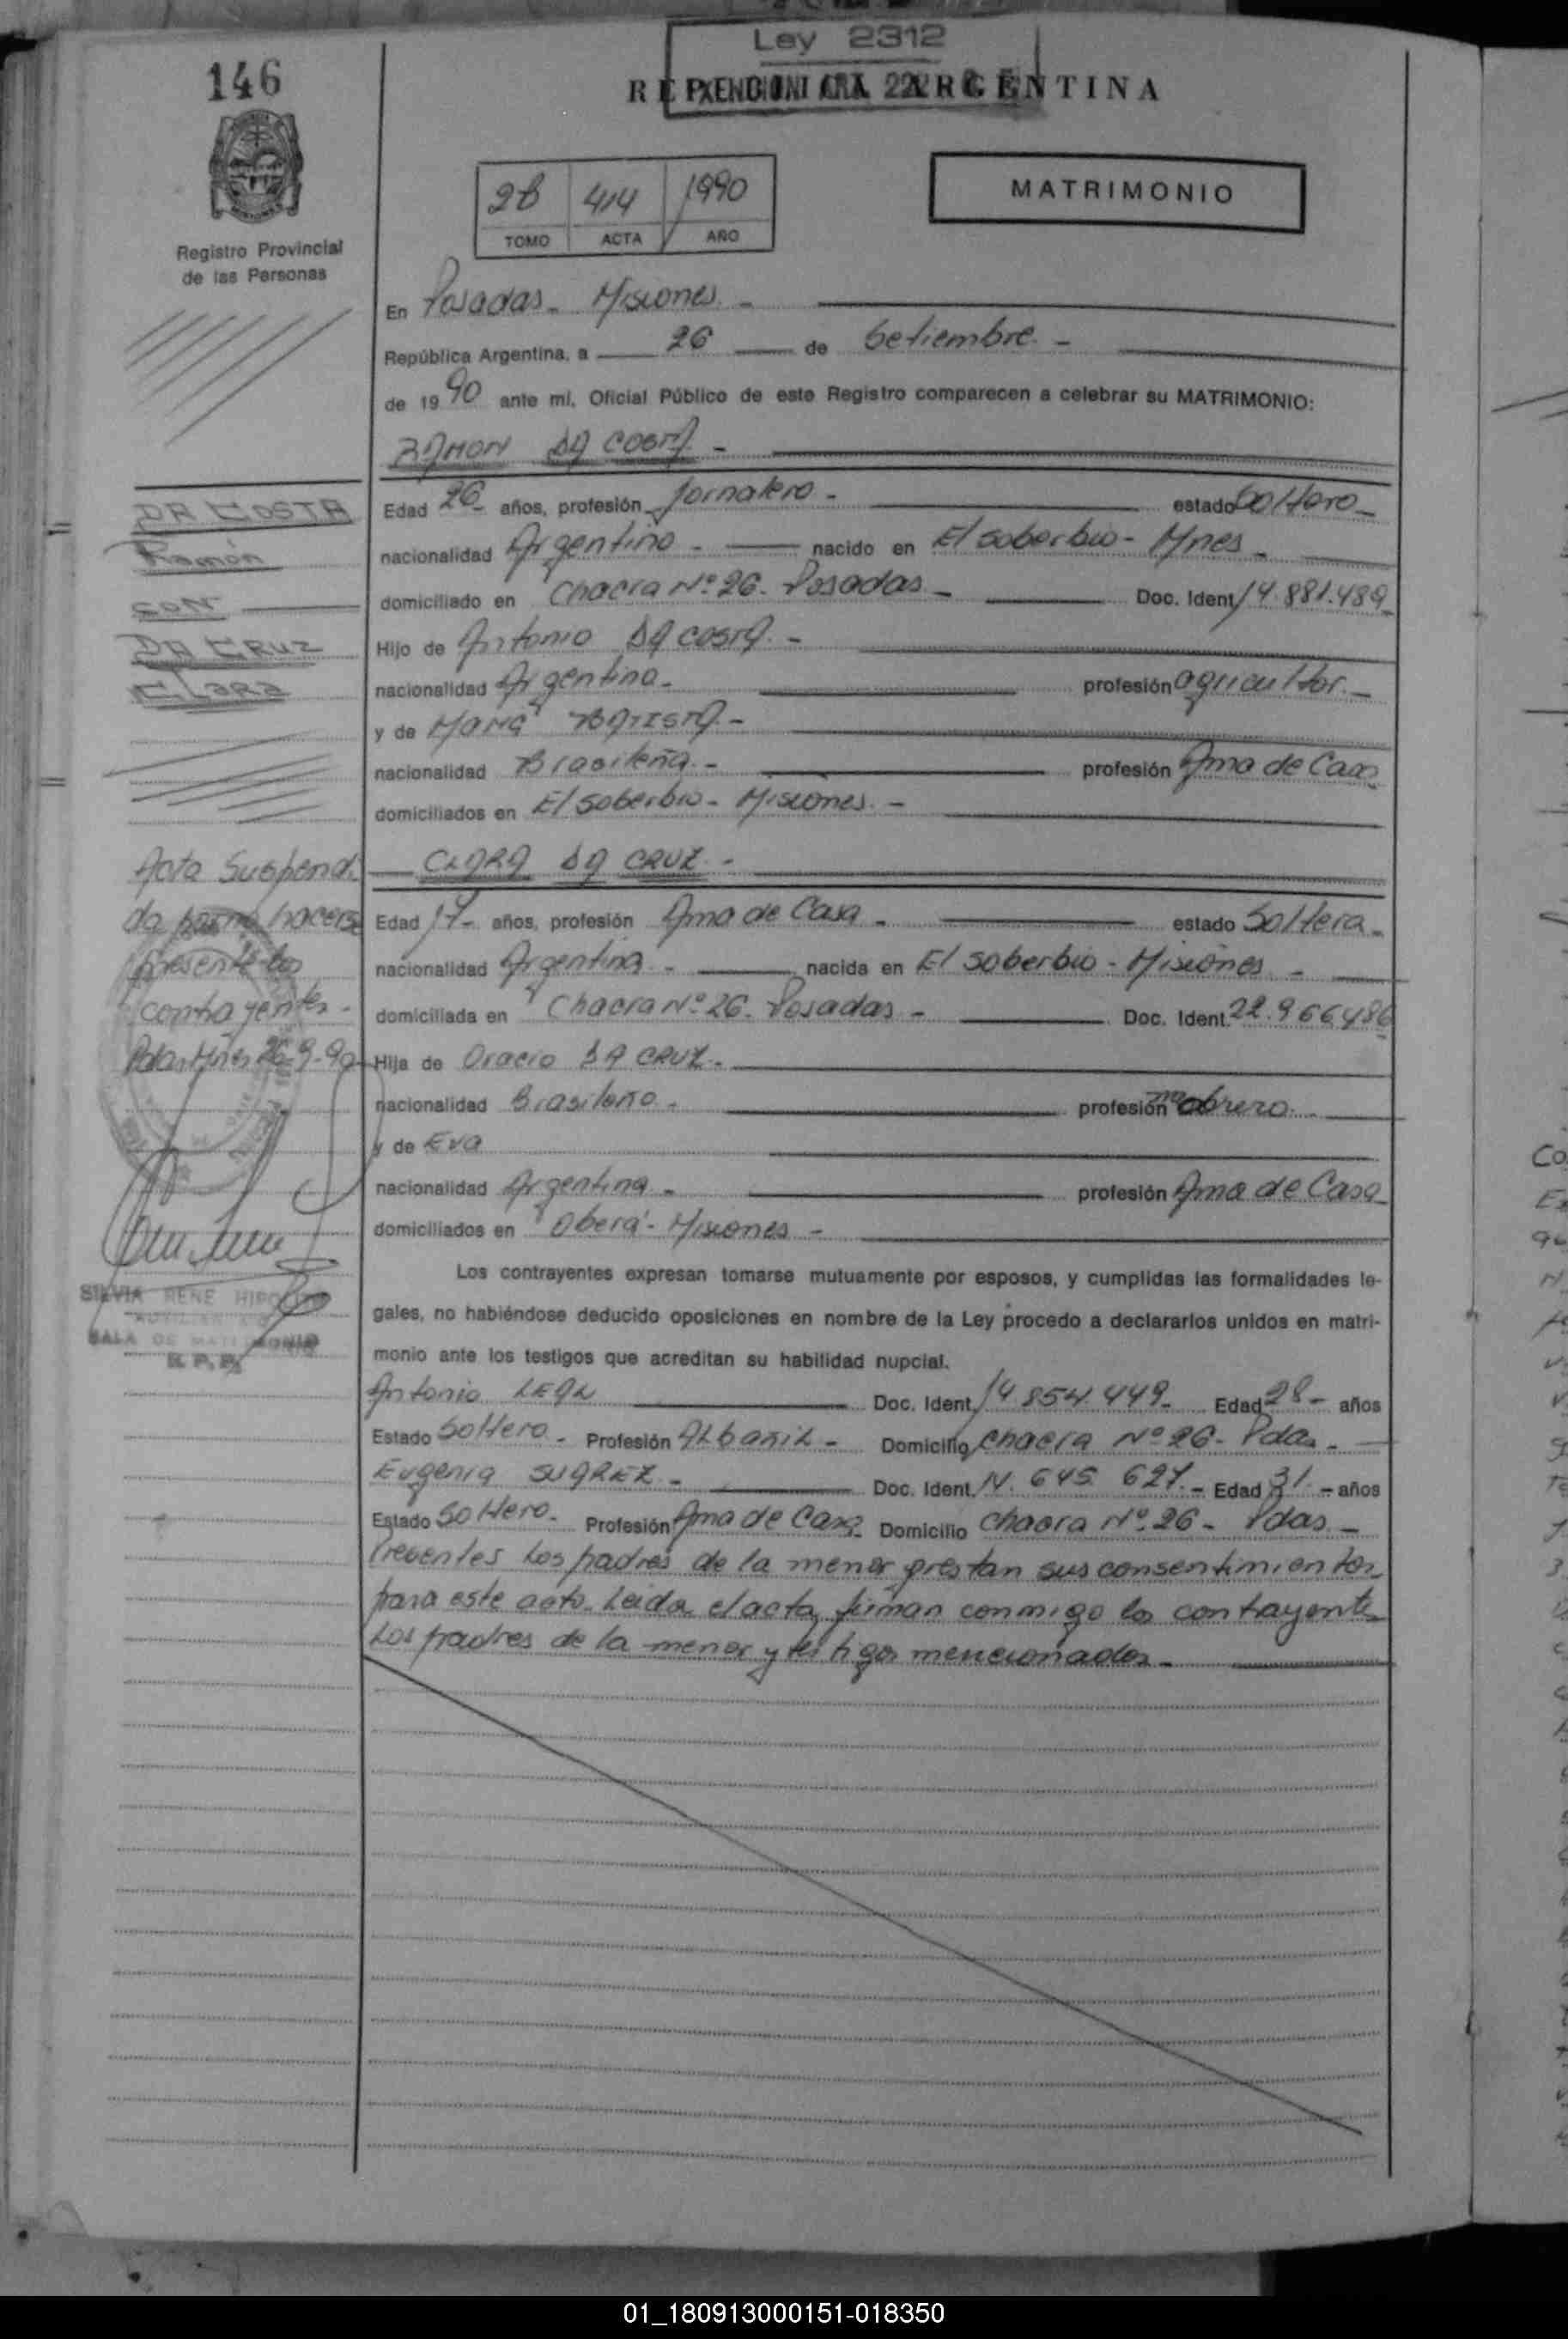 Ley 2312
146
REPUBLICA ARGENTINA
2B 414 1990
TOMO ACTA AÑO
MATRIMONIO
Registro Provincial
de las Personas
En Posadas - Misiones -
República Argentina, a 26 de Setiembre -
de 1990 ante mí, Oficial Público de este Registro comparecen a celebrar su MATRIMONIO:
RAMON DA COSTA -
DA COSTA
Ramón
CON
DA CRUZ
CLARA
Edad 26 años, profesión Jornalero - estado Soltero -
nacionalidad Argentino - nacido en El Soberbio - Mnes -
domiciliado en Chacra Nº 26. Posadas - Doc. Ident. 14.881.489
Hijo de Antonio DA COSTA -
nacionalidad Argentina - profesión agricultor. -
y de María BATISTA -
nacionalidad Brasileña - profesión Ama de Casa
domiciliados en El Soberbio - Misiones. -
CLARA DA CRUZ -
Acta Suspend.
da hacerse
presente los
contrayentes -
26-9-90
Edad 17 - años, profesión Ama de Casa - estado Soltera -
nacionalidad Argentina - nacida en El Soberbio - Misiones -
domiciliada en Chacra Nº 26. Posadas - Doc. Ident. 22.966486
Hija de Oracio DA CRUZ -
nacionalidad Brasileño - profesión obrero -
y de Eva
nacionalidad Argentina - profesión Ama de Casa
domiciliados en Oberá - Misiones -
SILVIA RENE
SALA DE MATRIMONIO
R. P. P.
Los contrayentes expresan tomarse mutuamente por esposos, y cumplidas las formalidades le-
gales, no habiéndose deducido oposiciones en nombre de la Ley procedo a declararlos unidos en matri-
monio ante los testigos que acreditan su habilidad nupcial.
Antonio LEAL Doc. Ident. 14.854.449 - Edad 28 - años
Estado Soltero - Profesión Albañil - Domicilio Chacra Nº 26 - Pdas. -
Eugenia SUAREZ - Doc. Ident. 645 627. - Edad 31. - años
Estado Soltero - Profesión Ama de Casa Domicilio Chacra Nº 26 - Pdas -
Presentes los padres de la menor prestan sus consentimientos
para este acto. Leida el acta, firman conmigo los contrayentes
los padres de la menor y testigos mencionados -
01_180913000151-018350